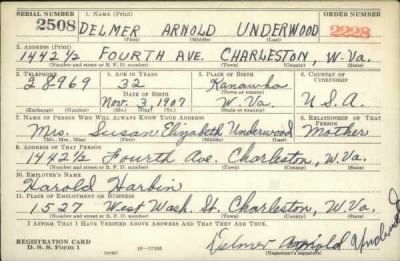 SERIAL NUMBER 1. NAME (Print) ORDER NUMBER
2508 DELMER ARNOLD UNDERWOOD 2228
(First) (Middle) (Last)
2. ADDRESS (Print)
1442½ FOURTH AVE. CHARLESTON, W. VA.
(Number and street or R. F. D. number) (Town) (County) (State)
3. TELEPHONE 4. AGE IN YEARS 5. PLACE OF BIRTH 6. COUNTRY OF CITIZENSHIP
28969 32 Kanawha
DATE OF BIRTH (Town or county)
Nov. 3, 1907 W. Va. U.S.A.
(Exchange) (Number) (Mo.) (Day) (Yr.) (State or country)
7. NAME OF PERSON WHO WILL ALWAYS KNOW YOUR ADDRESS 8. RELATIONSHIP OF THAT PERSON
Mrs. Susan Elizabeth Underwood Mother
(Mr., Mrs., Miss) (First) (Middle) (Last)
9. ADDRESS OF THAT PERSON
1442½ Fourth Ave. Charleston, W. Va.
(Number and street or R. F. D. number) (Town) (County) (State)
10. EMPLOYER'S NAME
Harold Harbin
11. PLACE OF EMPLOYMENT OR BUSINESS
1527 West Wash. St. Charleston, W. Va.
(Number and street or R. F. D. number) (Town) (County) (State)
I AFFIRM THAT I HAVE VERIFIED ABOVE ANSWERS AND THAT THEY ARE TRUE.
REGISTRATION CARD
D. S. S. FORM 1
Delmer Arnold Underwood
(Registrant's signature)